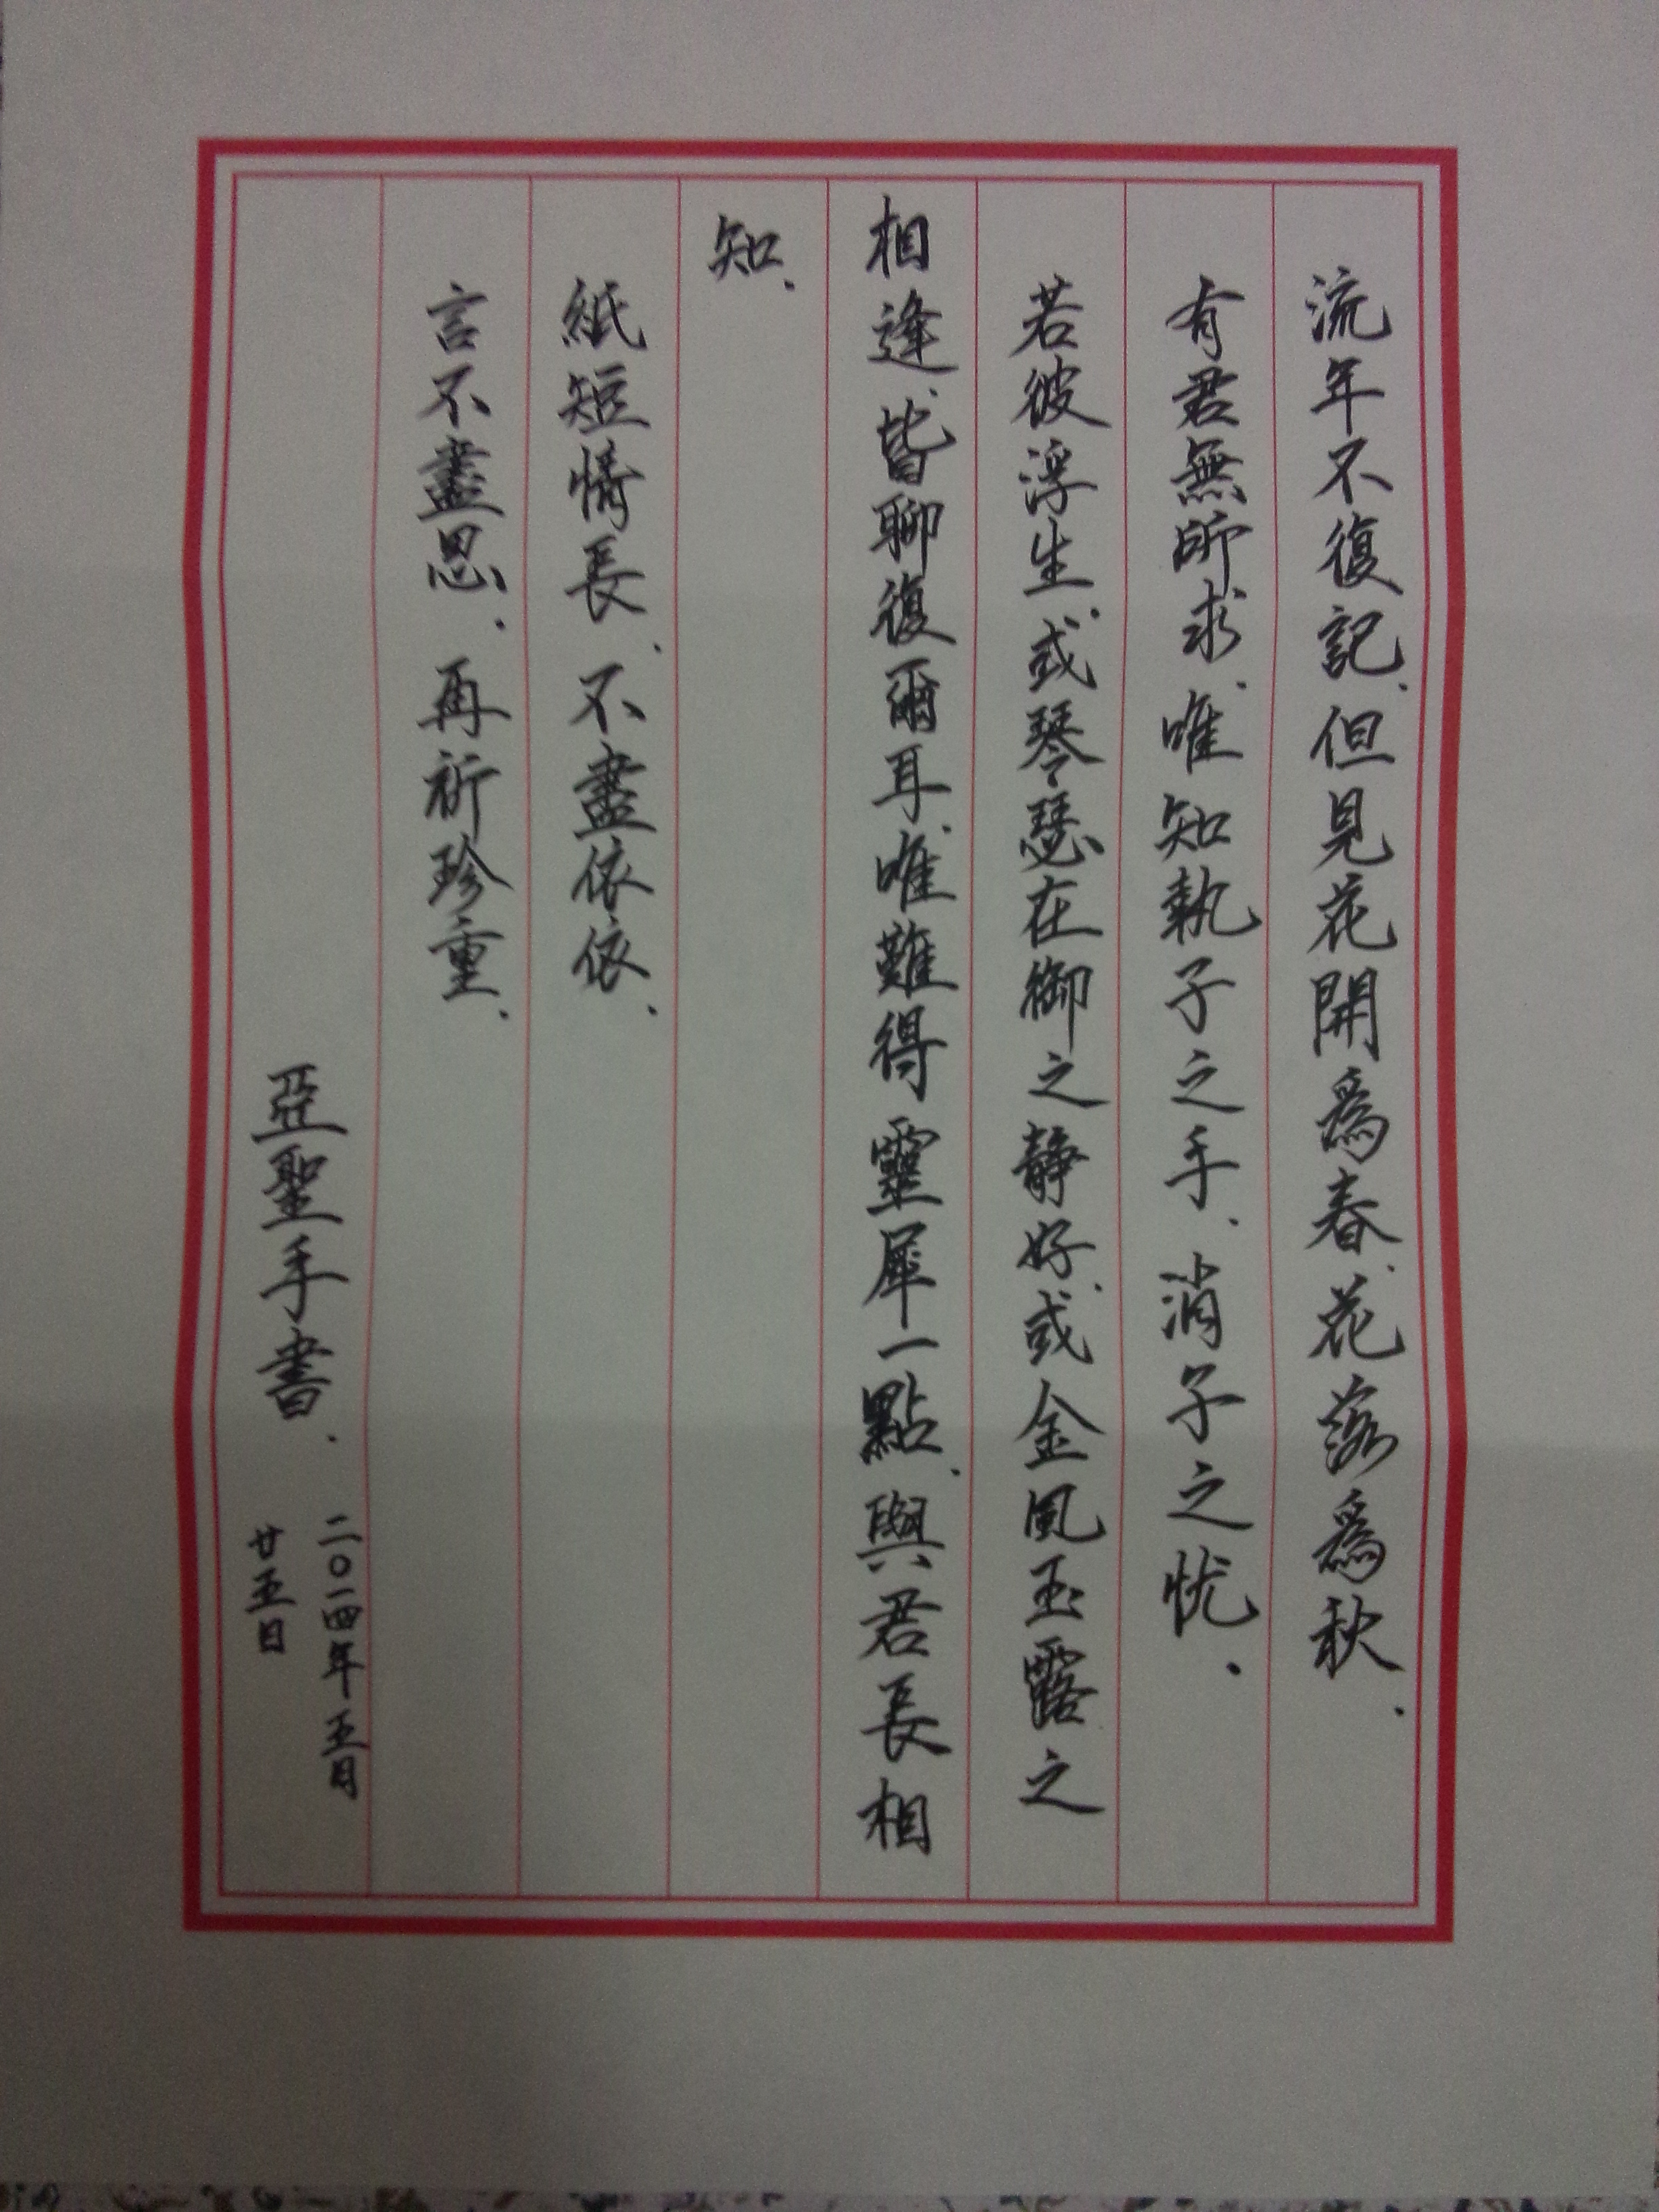 流年不復記.但見花開為春.花落為秋.
有君無所求.唯知執子之手.消子之忧.
若彼浮生.或琴瑟在御之靜好.或金風玉露之
相逢.皆聊復爾耳.唯難得靈犀一點.與君長相
知.
紙短情長.不盡依依.
言不盡思.再祈珍重.
亞聖手書.
二〇一四年五月
廿五日